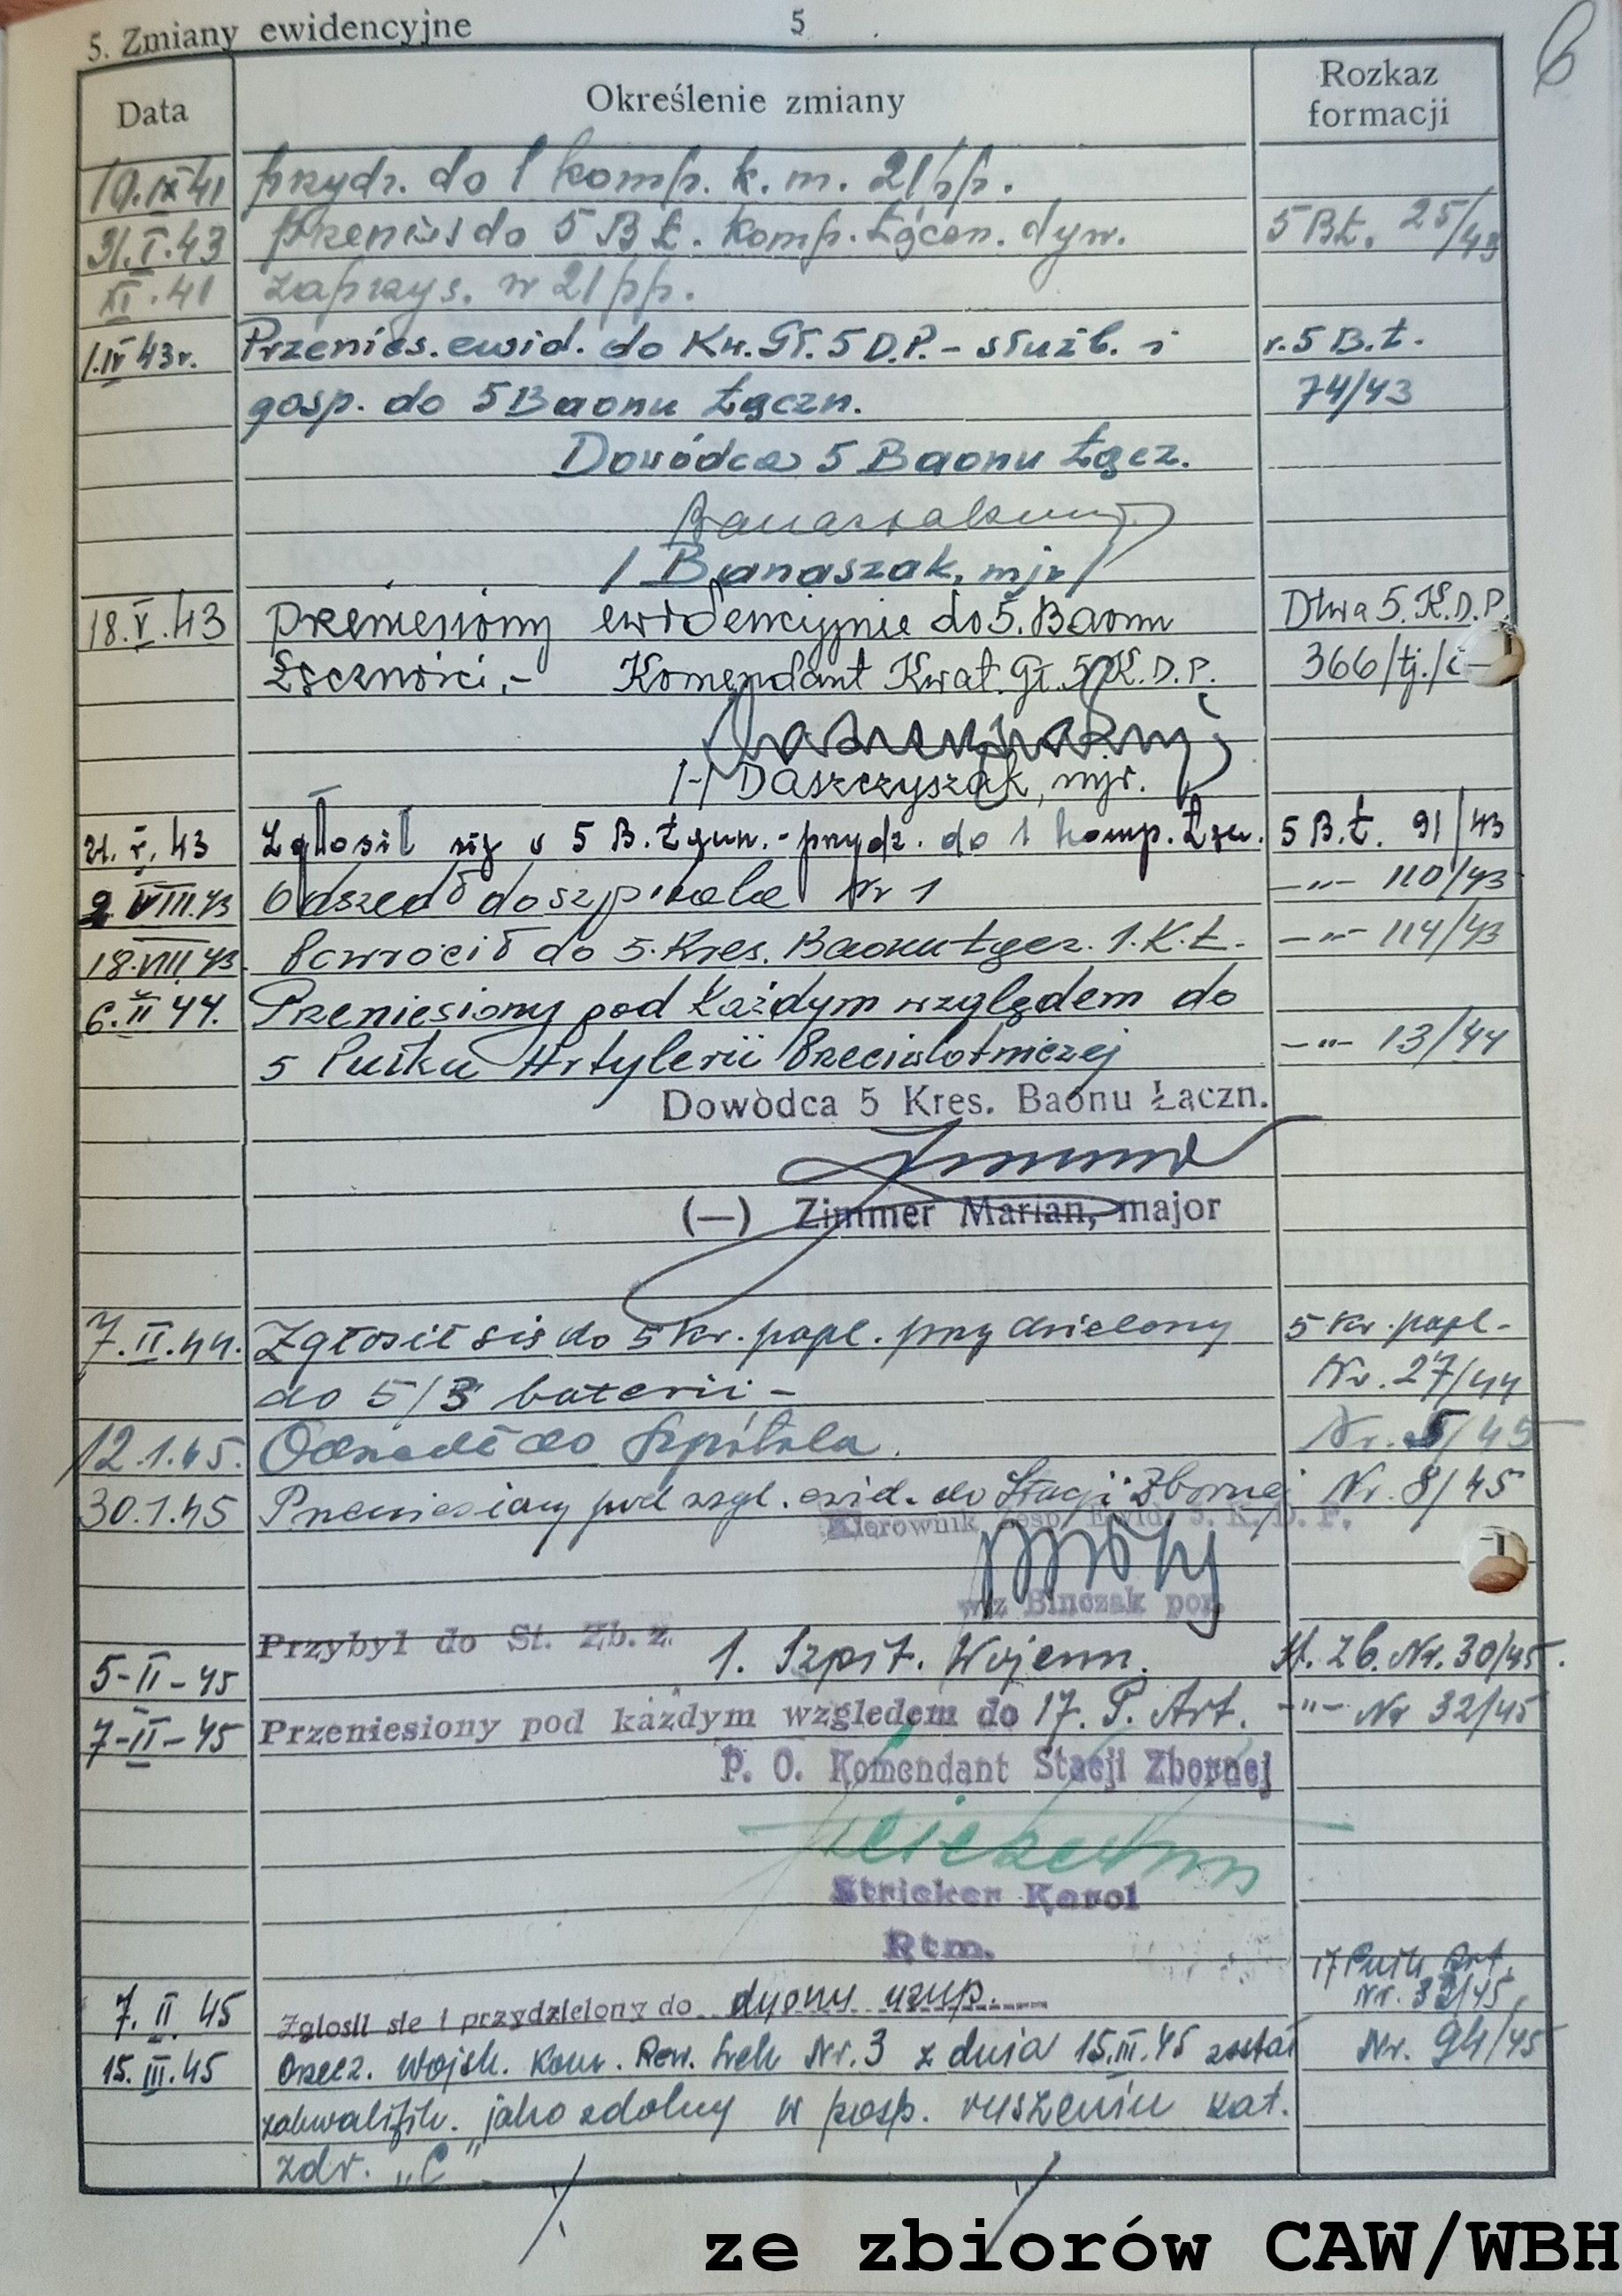 5. Zmiany ewidencyjne 5 6
Data Określenie zmiany Rozkaz formacji
10.IX 41 przydz. do 1 komp. k. m. 21 pp.
31.I.43 Przenies do 5 B Ł. komp. Łączn. dyw. 5 BŁ. 25/43
XI.41 zaprzys. w 21 pp.
1.IV 43r. Przenies. ewid. do Kw. Gł. 5 D.P. - służb. i r. 5 B.Ł.
gosp. do 5 Baonu Łączn. 74/43
Dowódca 5 Baonu Łącz.
/ Banaszak, mjr /
18.V.43 Przeniesiony ewidencyjnie do 5. Baonu Dtwa 5. K.D.P.
Łączności,- Komendant Kwat. Gł. 5 K.D.P. 366/tj./
/-/ Daszczyszak, mjr.
21.V.43 Zgłosił się z 5 B. - przydz. do 1 komp. 5 B.Ł. 91/43
2 VIII.43 Odszedł do szpitala Nr 1 -"- 110/43
18.VIII 43 Powrócił do 5. Kres. Baonu Łącz. 1. K. Ł. -"- 114/43
6.II 44. Przeniesiony pod każdym względem do
5 Pułku Artylerii Przeciwlotniczej -"- 13/44
Dowódca 5 Kres. Baonu Łączn.
(—) Zimmer Marian, major
7.II.44. Zgłosił się do 5 kr. papl. przydzielony 5 kr. papl-
do 5/3 baterii - Nr. 27/44
12.1.45. Odszedł do Szpitala. Nr. 5/45
30.1.45 Przeniesiony pod wzgl. ewid. do Stacji Zbornej Nr. 8/45
Kierownik Zesp. Ewid. 5. K. D. P.
wz Binczak por.
Przybył do St. Zb. z.
5-II-45 1. Szpit. Wojenn. St. Zb. Nr. 30/45.
7-II-45 Przeniesiony pod każdym względem do 17. P. Art. -"- Nr 32/45
P. O. Komendant Stacji Zbornej
Stricker Karol
Rtm.
17 Pułk Art.
7. II 45 Zgłosił się i przydzielony do dyonu uzup. Nr. 32/45
15. III.45 Orzecz. Wojsk. Kom. Rew. Lek Nr. 3 z dnia 15.III.45 został Nr. 94/45
zakwalifik. "jako zdolny w posp. ruszeniu kat.
zdr. „C"
ze zbiorów CAW/WBH